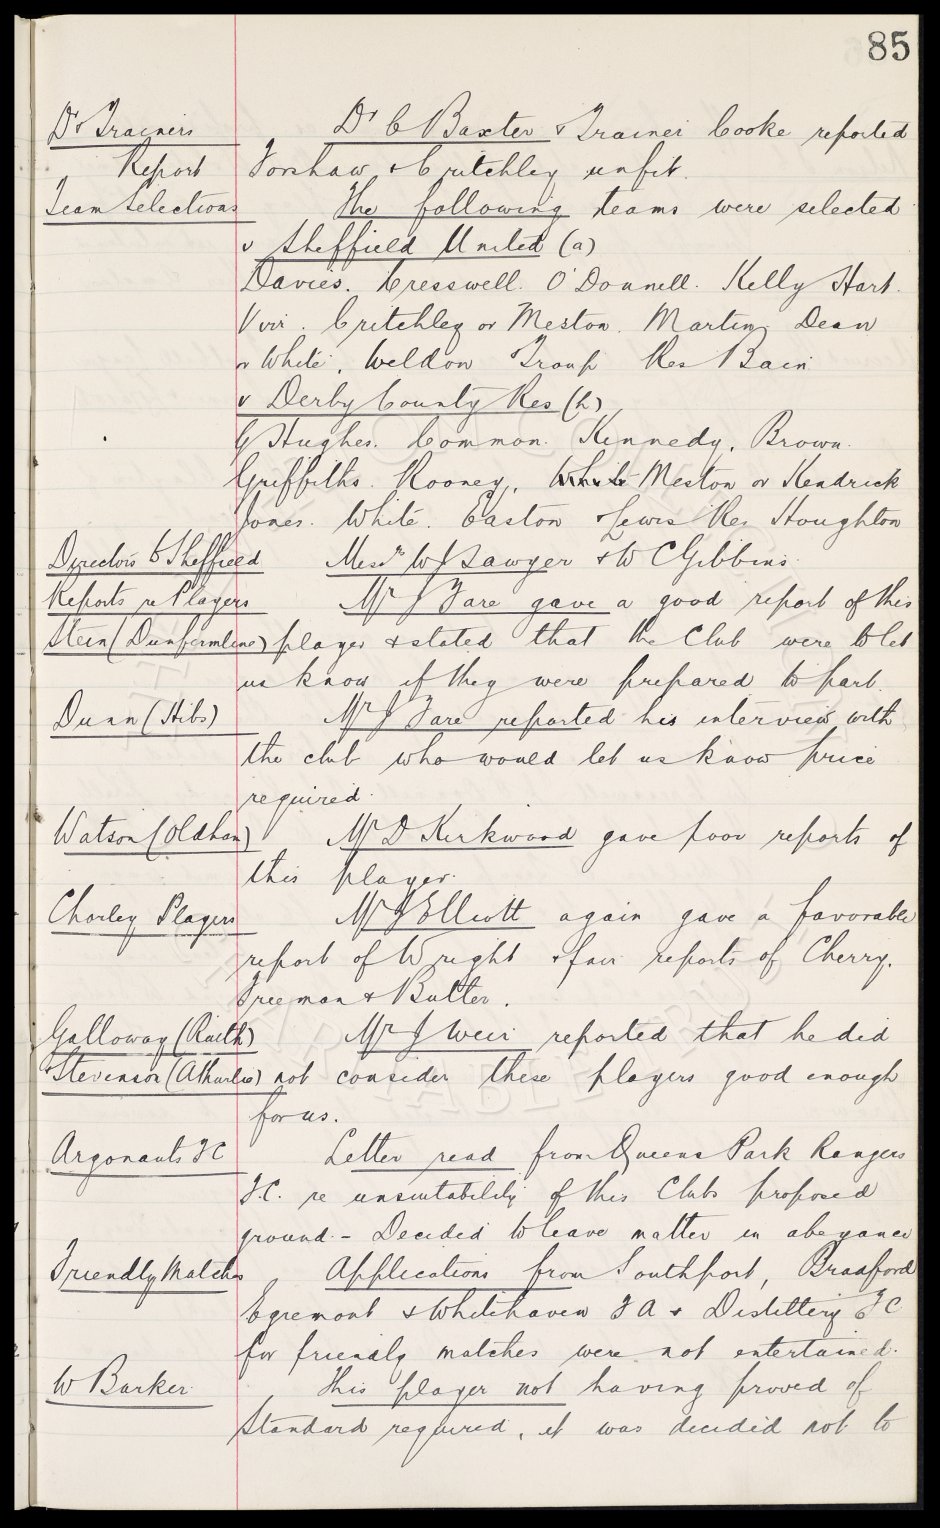 85
Dr & Trainers Dr C Baxter & Trainer Cooke reported
Report Forshaw & Critchley unfit.
Team Selections The following teams were selected
v Sheffield United (a)
Davies. Cresswell. O'Donnell. Kelly Hart.
Virr. Critchley or Meston. Martin. Dean
or White. Weldon Troup Res Bain
v Derby County Res (h)
G Hughes. Common. Kennedy. Brown.
Griffiths. Rooney, White Meston or Kendrick
Jones. White. Easton & Lewis Res Houghton
Directors to Sheffield Messrs W J Sawyer & W C Gibbins
Reports re Players Mr J Fare gave a good report of this
Stein (Dunfermline) player & stated that the Club were to let
us know if they were prepared to part.
Dunn (Hibs) Mr J Fare reported his interview with
the club who would let us know price
required.
Watson (Oldham) Mr D Kirkwood gave poor reports of
this player.
Chorley Players Mr J Elliott again gave a favorable
report of Wright & fair reports of Cherry.
Freeman & Butler.
Galloway (Raith) Mr J Weir reported that he did
& Stevenson (Athurlie) not consider these players good enough
for us.
Argonauts FC Letter read from Queens Park Rangers
F.C. re unsuitability of this Clubs proposed
ground. - Decided to leave matter in abeyance
Friendly Matches Applications from Southport, Bradford
Egremont & Whitehaven F A & Distillery F C
for friendly matches were not entertained.
W Barker. This player not having proved of
Standard required, it was decided not to